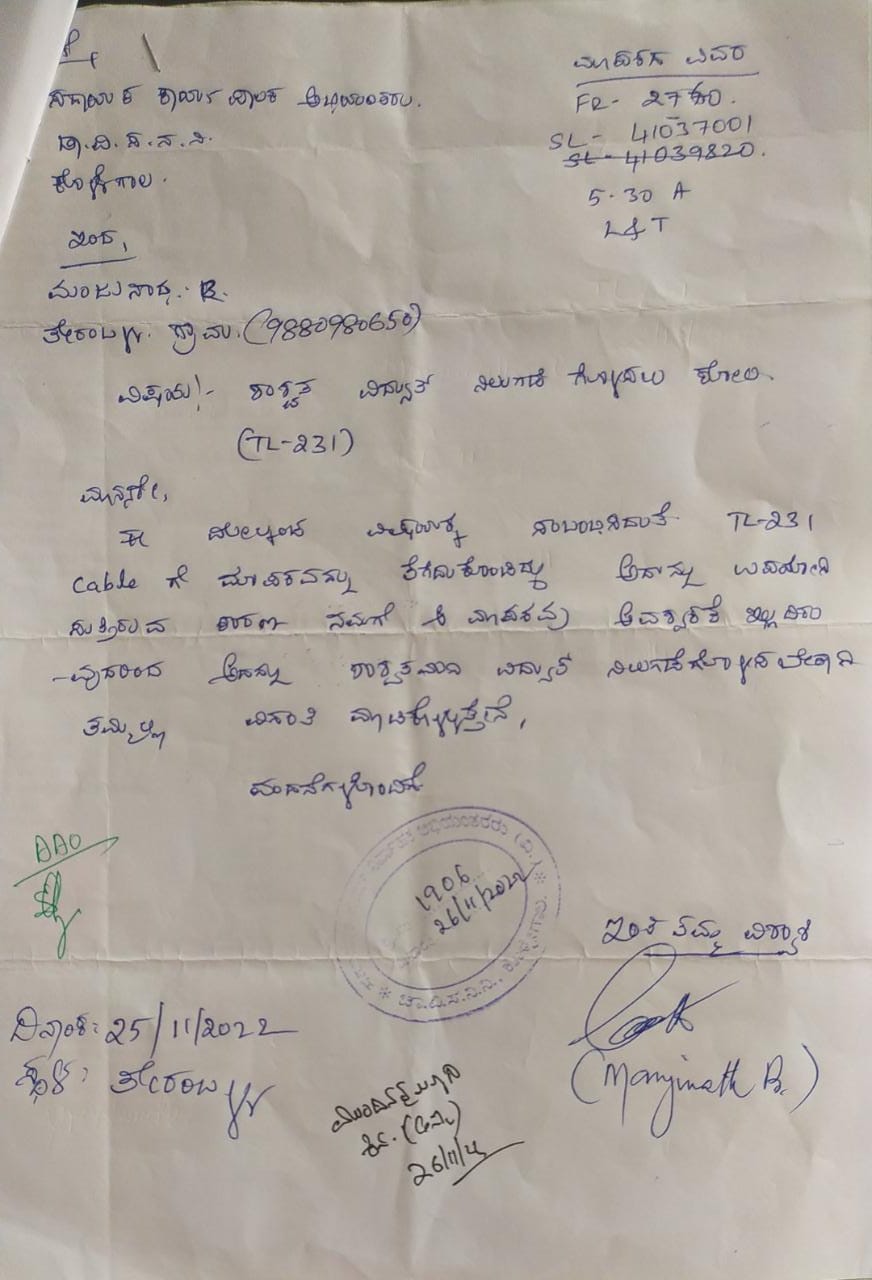 ಗೆ,
ಸಹಾಯಕ ಕಾರ್ಯಪಾಲಕ ಅಭಿಯಂತರರು.
ಚಾ.ವಿ.ಸ.ನಿ.ನಿ.
ಕೊಳ್ಳೇಗಾಲ.
ಮಾಪಕದ ವಿವರ
FR- 2740.
SL- 41037001
SL- 41039820.
5-30 A
L&T
ಇಂದ,
ಮಂಜುನಾಥ್. B.
ತೇರಂಬಳ್ಳಿ. ಗ್ರಾಮ. (9880980650)
ವಿಷಯ:- ಶಾಶ್ವತ ವಿದ್ಯುತ್ ನಿಲುಗಡೆ ಗೊಳಿಸಲು ಕೋರಿ.
(TL-231)
ಮಾನ್ಯರೇ,
ಈ ಮೇಲ್ಕಂಡ ವಿಷಯಕ್ಕೆ ಸಂಬಂಧಿಸಿದಂತೆ TL-231
Cable ಗೆ ಮಾಪಕವನ್ನು ತೆಗೆದುಕೊಂಡಿದ್ದು ಅದನ್ನು ಉಪಯೋಗಿ
ಸುತ್ತಿರುವ ಕಾರಣ ನಮಗೆ ಆ ಮಾಪಕವು ಅವಶ್ಯಕತೆ ಇಲ್ಲದಿರು
-ವುದರಿಂದ ಅದನ್ನು ಶಾಶ್ವತವಾಗಿ ವಿದ್ಯುತ್ ನಿಲುಗಡೆಗೊಳಿಸಬೇಕಾಗಿ
ತಮ್ಮಲ್ಲಿ ವಿನಂತಿ ಮಾಡಿಕೊಳ್ಳುತ್ತೇನೆ,
ವಂದನೆಗಳೊಂದಿಗೆ
AAO
1906
26/11/2022
ಇಂತಿ ತಮ್ಮ ವಿಶ್ವಾಸಿ
(Manjinath B.)
ದಿನಾಂಕ: 25/11/2022
ಸ್ಥಳ: ತೇರಂಬಳ್ಳಿ
26/11/22